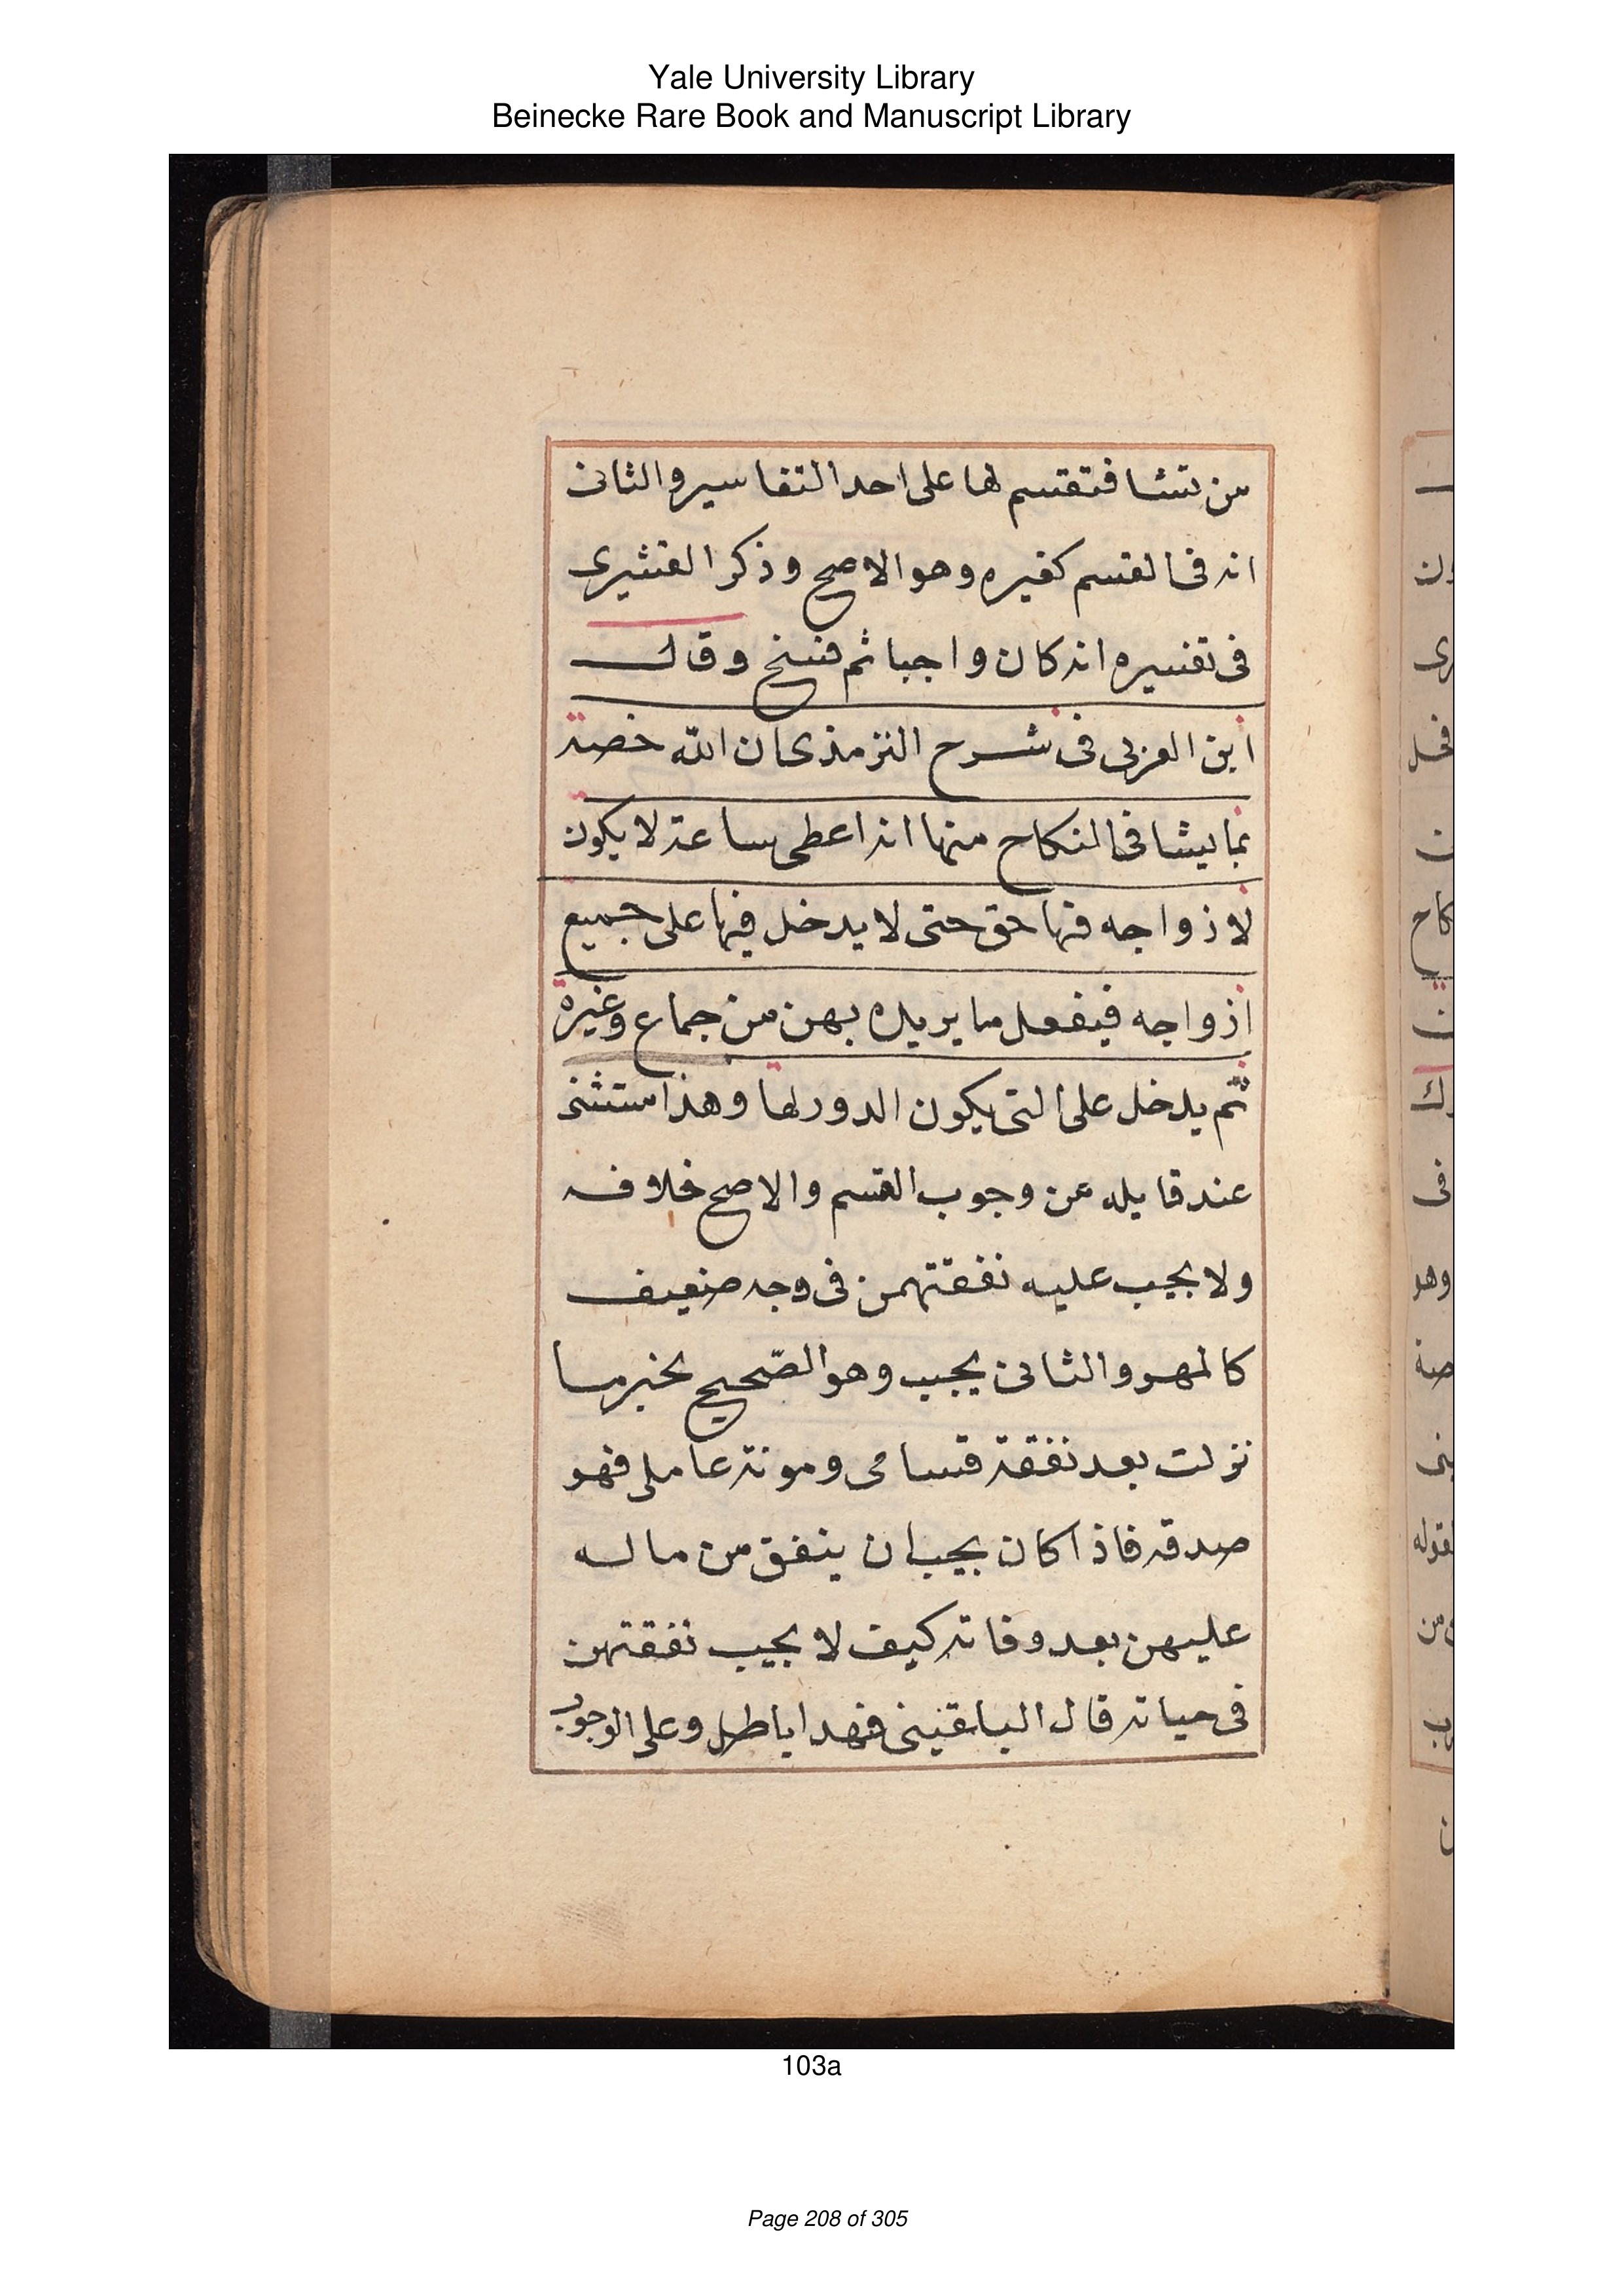 Yale University Library
Beinecke Rare Book and Manuscript Library
من تشا فتقسم لها على احد التفاسير والثانى
انه فى القسم كغيره وهو الاصح وذكر القشيرى
فى تفسيره انه كان واجبا ثم نسخ وقال
ابن العربى فى شرح الترمذى ان الله خصه
بما يشا فى النكاح منها انه اعطى ساعة لا يكون
لازواجه فيها حق حتى لا يدخل فيها على جميع
ازواجه فيفعل ما يريده بهن من جماع وغيره
ثم يدخل على التى يكون الدور لها وهذا ستثنى
عند قايله عن وجوب القسم والاصح خلافه
ولا يجب عليه نفقتهمن فى وجه ضعيف
كالمهر والثانى يجب وهو الصّحيح بخبر ما
نزلت بعد نفقة قسامى ومونة عاملى فهو
صدقه فاذا كان يجب ان ينفق من ماله
عليهن بعد وفاته كيف لا يجب نفقتهن
فى حياته قال البلقينى فهدا باطل وعلى الوجوب
103a
Page 208 of 305